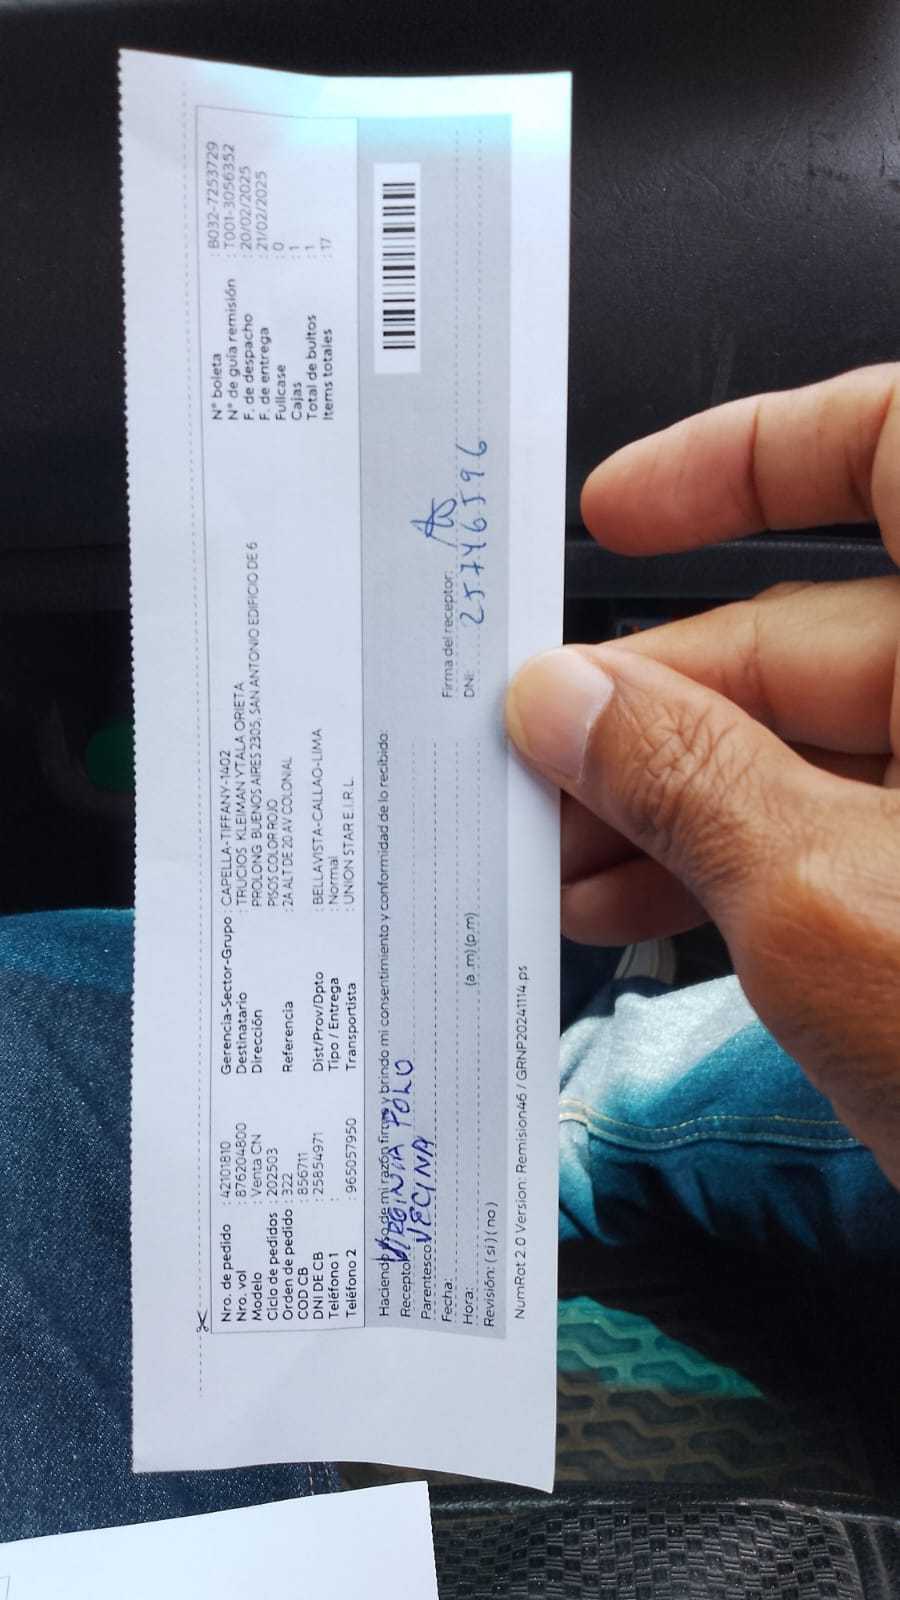 Nro. de pedido : 42101810
Nro. vol : 876204800
Modelo : Venta CN
Ciclo de pedidos : 202503
Orden de pedido : 322
COD CB : 856711
DNI DE CB : 25854971
Teléfono 1 :
Teléfono 2 : 965057950
Gerencia-Sector-Grupo : CAPELLA-TIFFANY-1402
Destinatario : TRUCIOS KLEIMAN YTALA ORIETA
Dirección PROLONG BUENOS AIRES 2305, SAN ANTONIO EDIFICIO DE 6
PISOS COLOR ROJO
Referencia : 2A ALT DE 20 AV COLONIAL
Dist/Prov/Dpto : BELLAVISTA-CALLAO-LIMA
Tipo / Entrega : Normal
Transportista : UNION STAR E.I.R.L.
N° boleta : B032-7253729
N° de guía remisión : T001-3056352
F. de despacho : 20/02/2025
F. de entrega : 21/02/2025
Fullcase : 0
Cajas : 1
Total de bultos : 1
Items totales : 17
Haciendo uso de mi razón firmo y brindo mi consentimiento y conformidad de lo recibido:
Receptor: VIRGINIA POLO
Parentesco: VECINA
Fecha:
Hora: (a.m)(p.m)
Revisión: ( si ) ( no )
Firma del receptor:
DNI: 25746596
NumRot 2.0 Version: Remision46 / GRNP20241114.ps